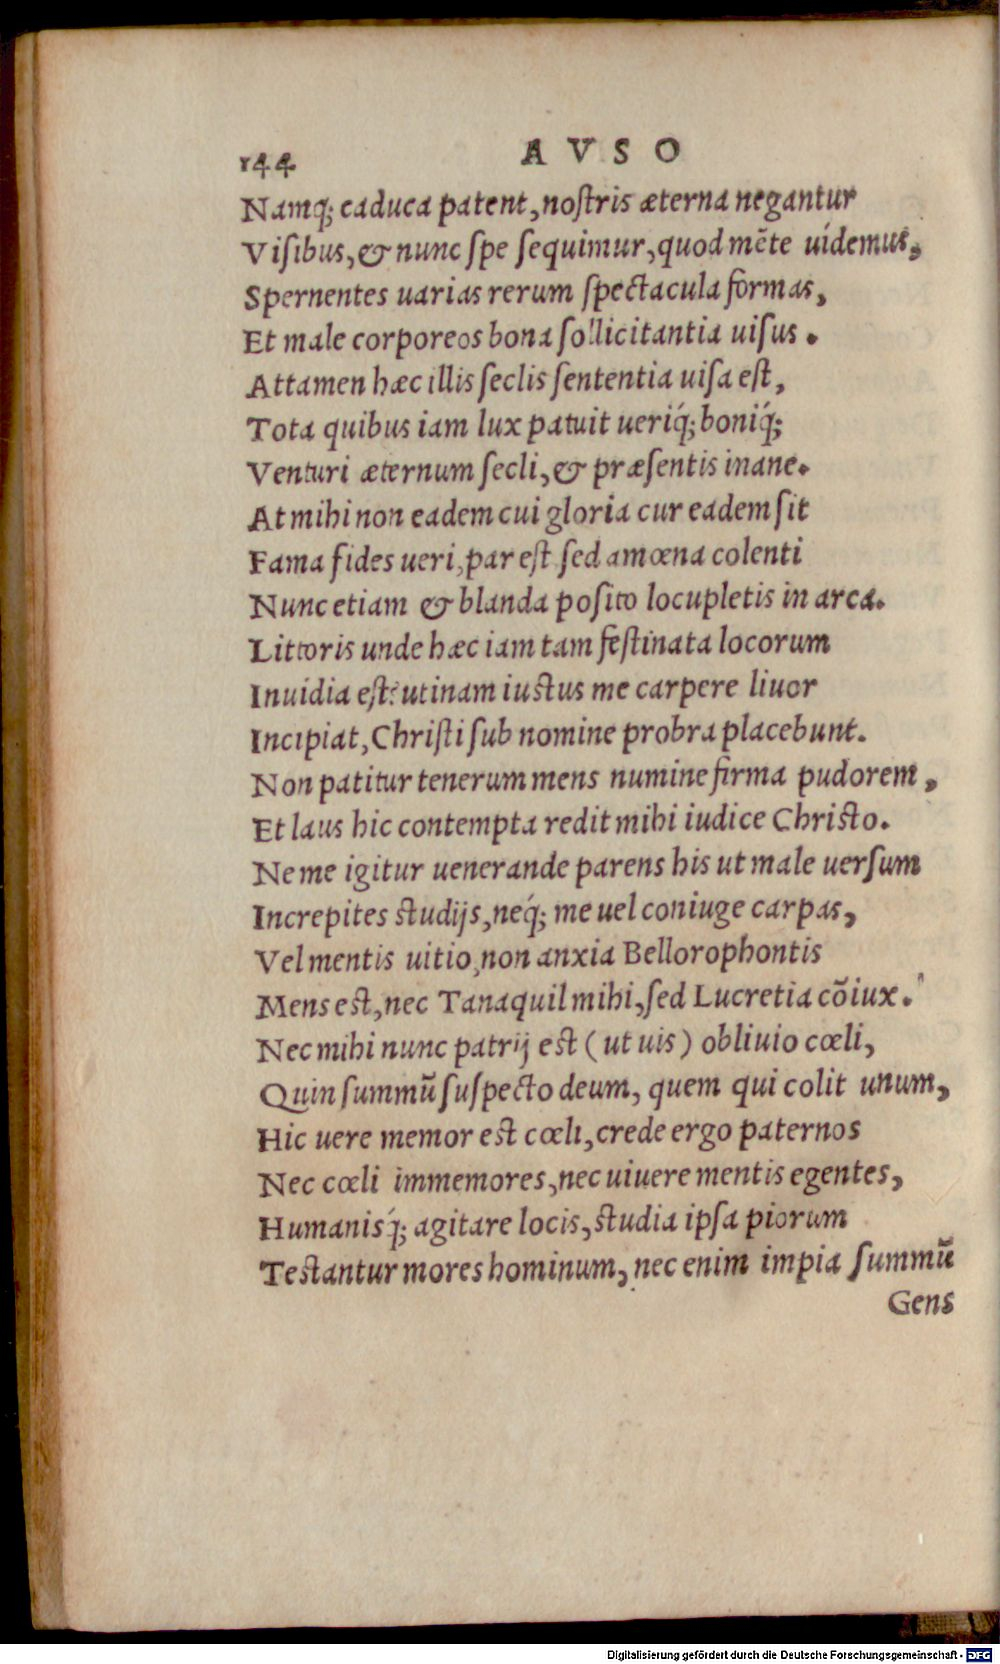 144 AVSO
Namq́; eaduca patent, noſtris æterna negantur
Viſibus, & nunc ſpe ſequimur, quod mẽte uidemus,
Spernentes uarias rerum ſpectacula formas,
Et male corporeos bona ſollicitantia uiſus.
Attamen hæc illis ſeclis ſententia uiſa eſt,
Tota quibus iam lux patuit ueriq́; boniq́;
Venturi æternum ſecli, & præſentis inane.
At mihi non eadem cui gloria cur eadem ſit
Fama fides ueri, par eſt ſed amœna colenti
Nunc etiam & blanda poſito locupletis in arca.
Littoris unde hæc iam tam feſtinata locorum
Inuidia eſt? utinam iuctus me carpere liuor
Incipiat, Chriſti ſub nomine probra placebunt.
Non patitur tenerum mens numine firma pudorem,
Et laus hic contempta redit mihi iudice Chriſto.
Ne me igitur uenerande parens his ut male uerſum
Increpites ſtudijs, neq́; me uel coniuge carpas,
Vel mentis uitio, non anxia Bellorophontis
Mens eſt, nec Tanaquil mihi, ſed Lucretia cõiux.
Nec mihi nunc patrij eſt (ut uis) obliuio cœli,
Quin ſummũ ſuſpecto deum, quem qui colit unum,
Hic uere memor eſt cœli, crede ergo paternos
Nec cœli immemores, nec uiuere mentis egentes,
Humanisq́; agitare locis, ſtudia ipſa piorum
Teſtantur mores hominum, nec enim impia ſummũ
Gens
Digitalisierung gefördert durch die Deutsche Forschungsgemeinschaft - DFG